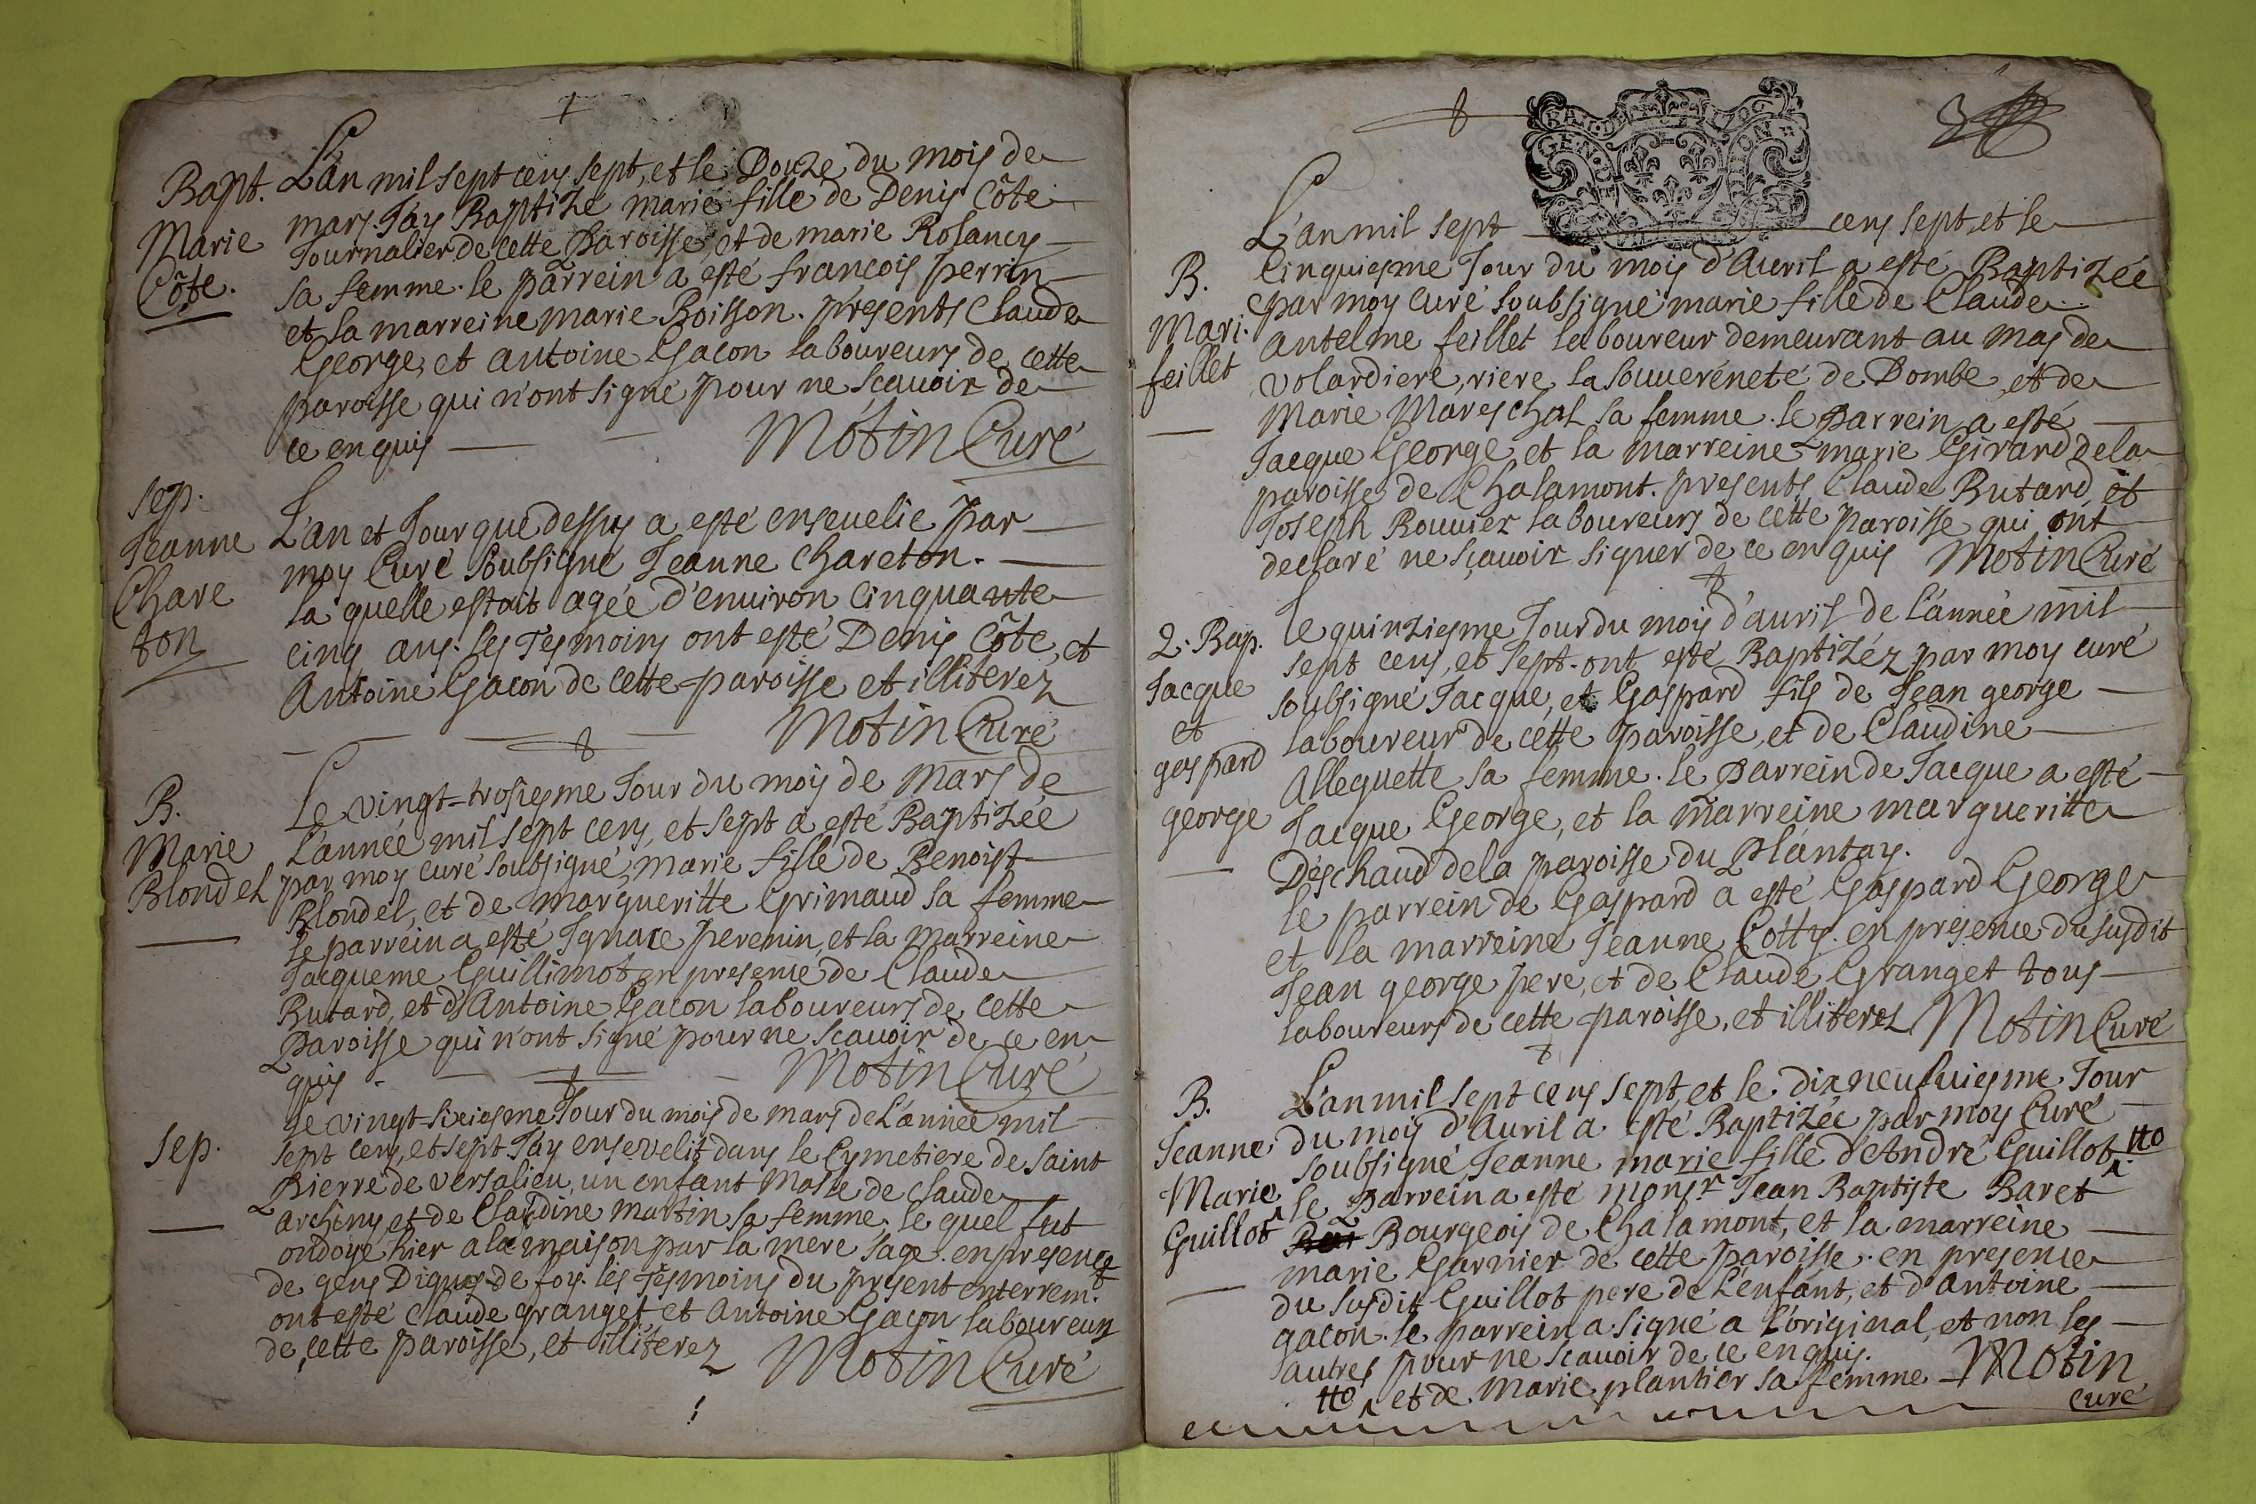 Bapt.
Marie
Côte.
L'an mil sept cens sept, et le Douze du mois de
mars J'ay Baptizé marie fille de Denis Côte
Journalier de cette Paroisse, et de marie Rosancy
sa femme. le parrein a esté françois perrin
et la marreine marie Boisson. presents Claude
George, et antoine Gacon laboureurs de cette
paroisse qui n'ont signé pour ne sçavoir de
ce enquis
Motin Curé
Sep.
Jeanne
Chare
ton
L'an et Jour que dessus a esté ensevelie par
moy Curé soubsigné Jeanne Chareton.
la quelle estoit agée d'environ cinquante
cinq ans. les Tesmoins ont esté Denis Côte, et
Antoine Gacon de cette paroisse et illiterez
Motin Curé
B.
Marie
Blondel
Le vingt-troisiesme Jour du mois de Mars de
L'année mil sept cens, et sept a esté Baptizée
par moy curé soubsigné marie fille de Benoist
Blondel, et de margueritte Grimaud sa femme
le parrein a esté Ignace perenin, et la Marreine
Jacqueme Guillimot en presence de Claude
Butard, et d'Antoine Gacon laboureurs de cette
Paroisse qui n'ont signé pour ne sçavoir de ce en
quis
Motin Curé
Sep.
Le vingt-sixiesme Jour du mois de mars de L'année mil
sept cens, et sept J'ay ensevelit dans le Cymetiere de saint
Pierre de versalieu, un enfant masle de claude
archeny et de Claudine martin sa femme. le quel fut
ondoyé hier a la maison par la mere sage. en presence
de gens Dignes de foy. les Tesmoins du present enterremt.
ont esté claude granget, et antoine Gacon laboureurs
de cette paroisse, et illiterez
Motin Curé
GEN. DE LYON
B.
Mari.
feillet
L'an mil sept cens sept, et le
Cinquiesme Jour du mois d'Avril a esté Baptizée
par moy curé soubsigné marie fille de Claude
antelme feillet laboureur demeurant au mas de
volardiere, riere la souverénete de Dombe, et de
Marie Mareschal sa femme. le Parrein a esté
Jacque George, et la marreine marie Girard de la
paroisse de Chalamont. presents Claude Butard, et
Joseph Rouvier laboureurs de cette paroisse qui ont
declaré ne sçavoir signer de ce enquis Motin Curé
2. Bap.
Jacque
et
gaspard
george
Le quinziesme Jour du mois d'avril de L'année mil
sept cens, et sept. ont esté Baptizéz par moy curé
soubsigné Jacque, et Gaspard fils de Jean george
laboureur de cette paroisse, et de Claudine
Alleguette sa femme. le Parrein de Jacque a esté
Jacque George, et la marreine margueritte
Déschaud de la paroisse du Plantay.
le parrein de Gaspard a esté Gaspard George
et la marreine Jeanne Cotty. en presence du susdit
Jean george pere, et de Claude Granget tous
laboureurs de cette paroisse, et illiterez Motin Curé
B.
Jeanne
Marie
Guillot
L'an mil sept cens sept, et le. dixneufviesme Jour
du mois d'Avril a esté Baptizée par moy Curé
soubsigné Jeanne marie fille d'André Guillot
le Parrein a esté monsr Jean Baptiste Baret
Bourgeois de Chalamont, et la marreine
marie Garnier de cette paroisse. en presence
du susdit Guillot pere de L'enfant, et d'antoine
gacon. le parrein a signé a l'original, et non les
autres pour ne scavoir de ce enquis.
et de Marie plantier sa femme Motin
Curé